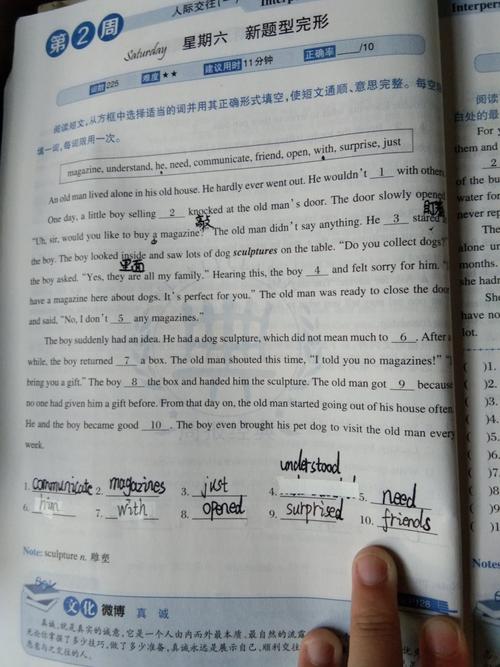 第2周
人际交往(二)
Saturday 星期六 新题型完形
词数 225 难度 ★★ 建议用时 11分钟 正确率 ____/10
阅读短文,从方框中选择适当的词并用其正确形式填空,使短文通顺、意思完整。每空限
填一词,每词限用一次。
magazine, understand, he, need, communicate, friend, open, with, surprise, just
An old man lived alone in his old house. He hardly ever went out. He wouldn't 1 with others.
One day, a little boy selling 2 knocked at the old man's door. The door slowly opened.
敲
盯着
"Uh, sir, would you like to buy a magazine?" The old man didn't say anything. He 3 stared
the boy. The boy looked inside and saw lots of dog sculptures on the table. "Do you collect dogs?"
里面
the boy asked. "Yes, they are all my family." Hearing this, the boy 4 and felt sorry for him. "
have a magazine here about dogs. It's perfect for you." The old man was ready to close the door
and said, "No, I don't 5 any magazines."
The boy suddenly had an idea. He had a dog sculpture, which did not mean much to 6 . After a
while, the boy returned 7 a box. The old man shouted this time, "I told you no magazines!" "I
bring you a gift." The boy 8 the box and handed him the sculpture. The old man got 9 because
no one had given him a gift before. From that day on, the old man started going out of his house often.
He and the boy became good 10 . The boy even brought his pet dog to visit the old man every
week.
understood
1. communicate 2. magazines 3. just 4. 5. need
6. him 7. with 8. opened 9. surprised 10. friends
Note: sculpture n. 雕塑
文化 微博 真 诚
真诚,就是真实的诚意,它是一个人由内而外最本质、最自然的流露
无论你掌握了多少技巧,做了多少准备,真诚永远是展示自己、顺利交往
愿意与之交往的人。
128
Interper
阅读
白处的最
For y
them and
2
of the bu
water for
never rep
The
alone u
she hadn
She
have no
lot.
( )1.
( )2.
( )3.
( )4.
( )5.
Notes